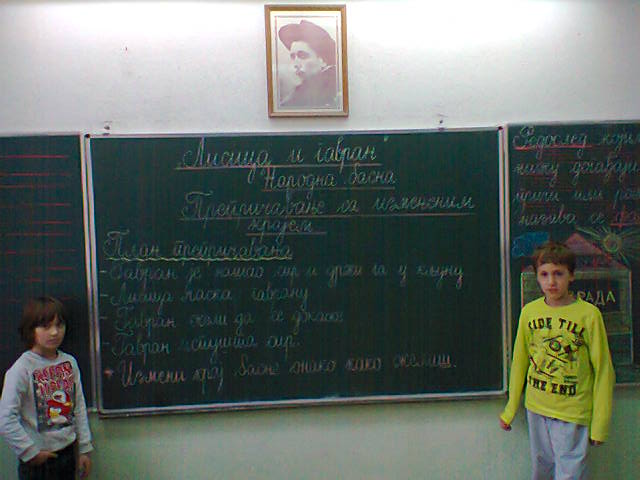 „Лисица и гавран"
Народна басна
Препричавање са измењеним
крајем
План препричавања
- Гавран је нашао сир и држи га у кљуну
- Лисица ласка гаврану
- Гавран жели да се докаже
- Гавран испушта сир.
* Измени крај басне онако како желиш.
Редослед којим
нижу догађаји
причи или
назива се
РАДА
SIDE TILL
THE END